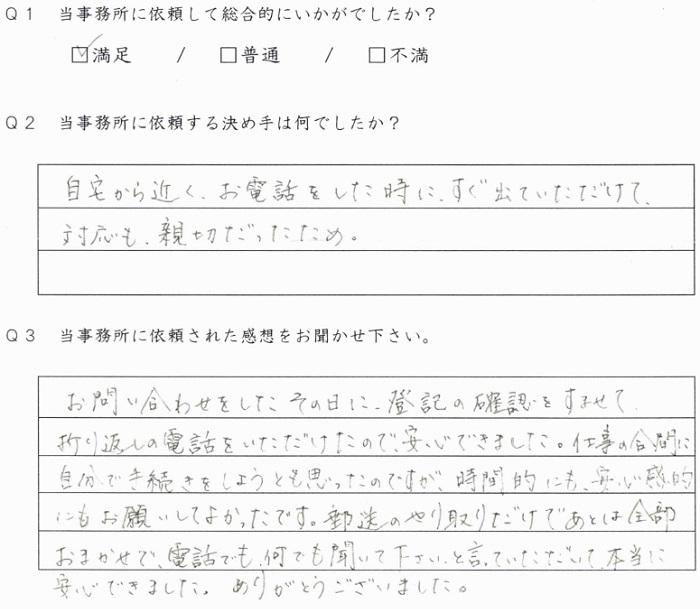 Q1 当事務所に依頼して総合的にいかがでしたか？
☑満足 / □普通 / □不満
Q2 当事務所に依頼する決め手は何でしたか？
自宅から近く、お電話をした時に、すぐ出ていただけて、
対応も、親切だったため。
Q3 当事務所に依頼された感想をお聞かせ下さい。
お問い合わせをしたその日に、登記の確認をすませて、
折り返しの電話をいただけたので、安心できました。仕事の合間に
自分で手続きをしようとも思ったのですが、時間的にも、安心感的
にもお願いしてよかったです。郵送のやり取りだけであとは全部
おまかせで、電話でも、何でも聞いて下さい、と言っていただいて、本当に
安心できました。ありがとうございました。